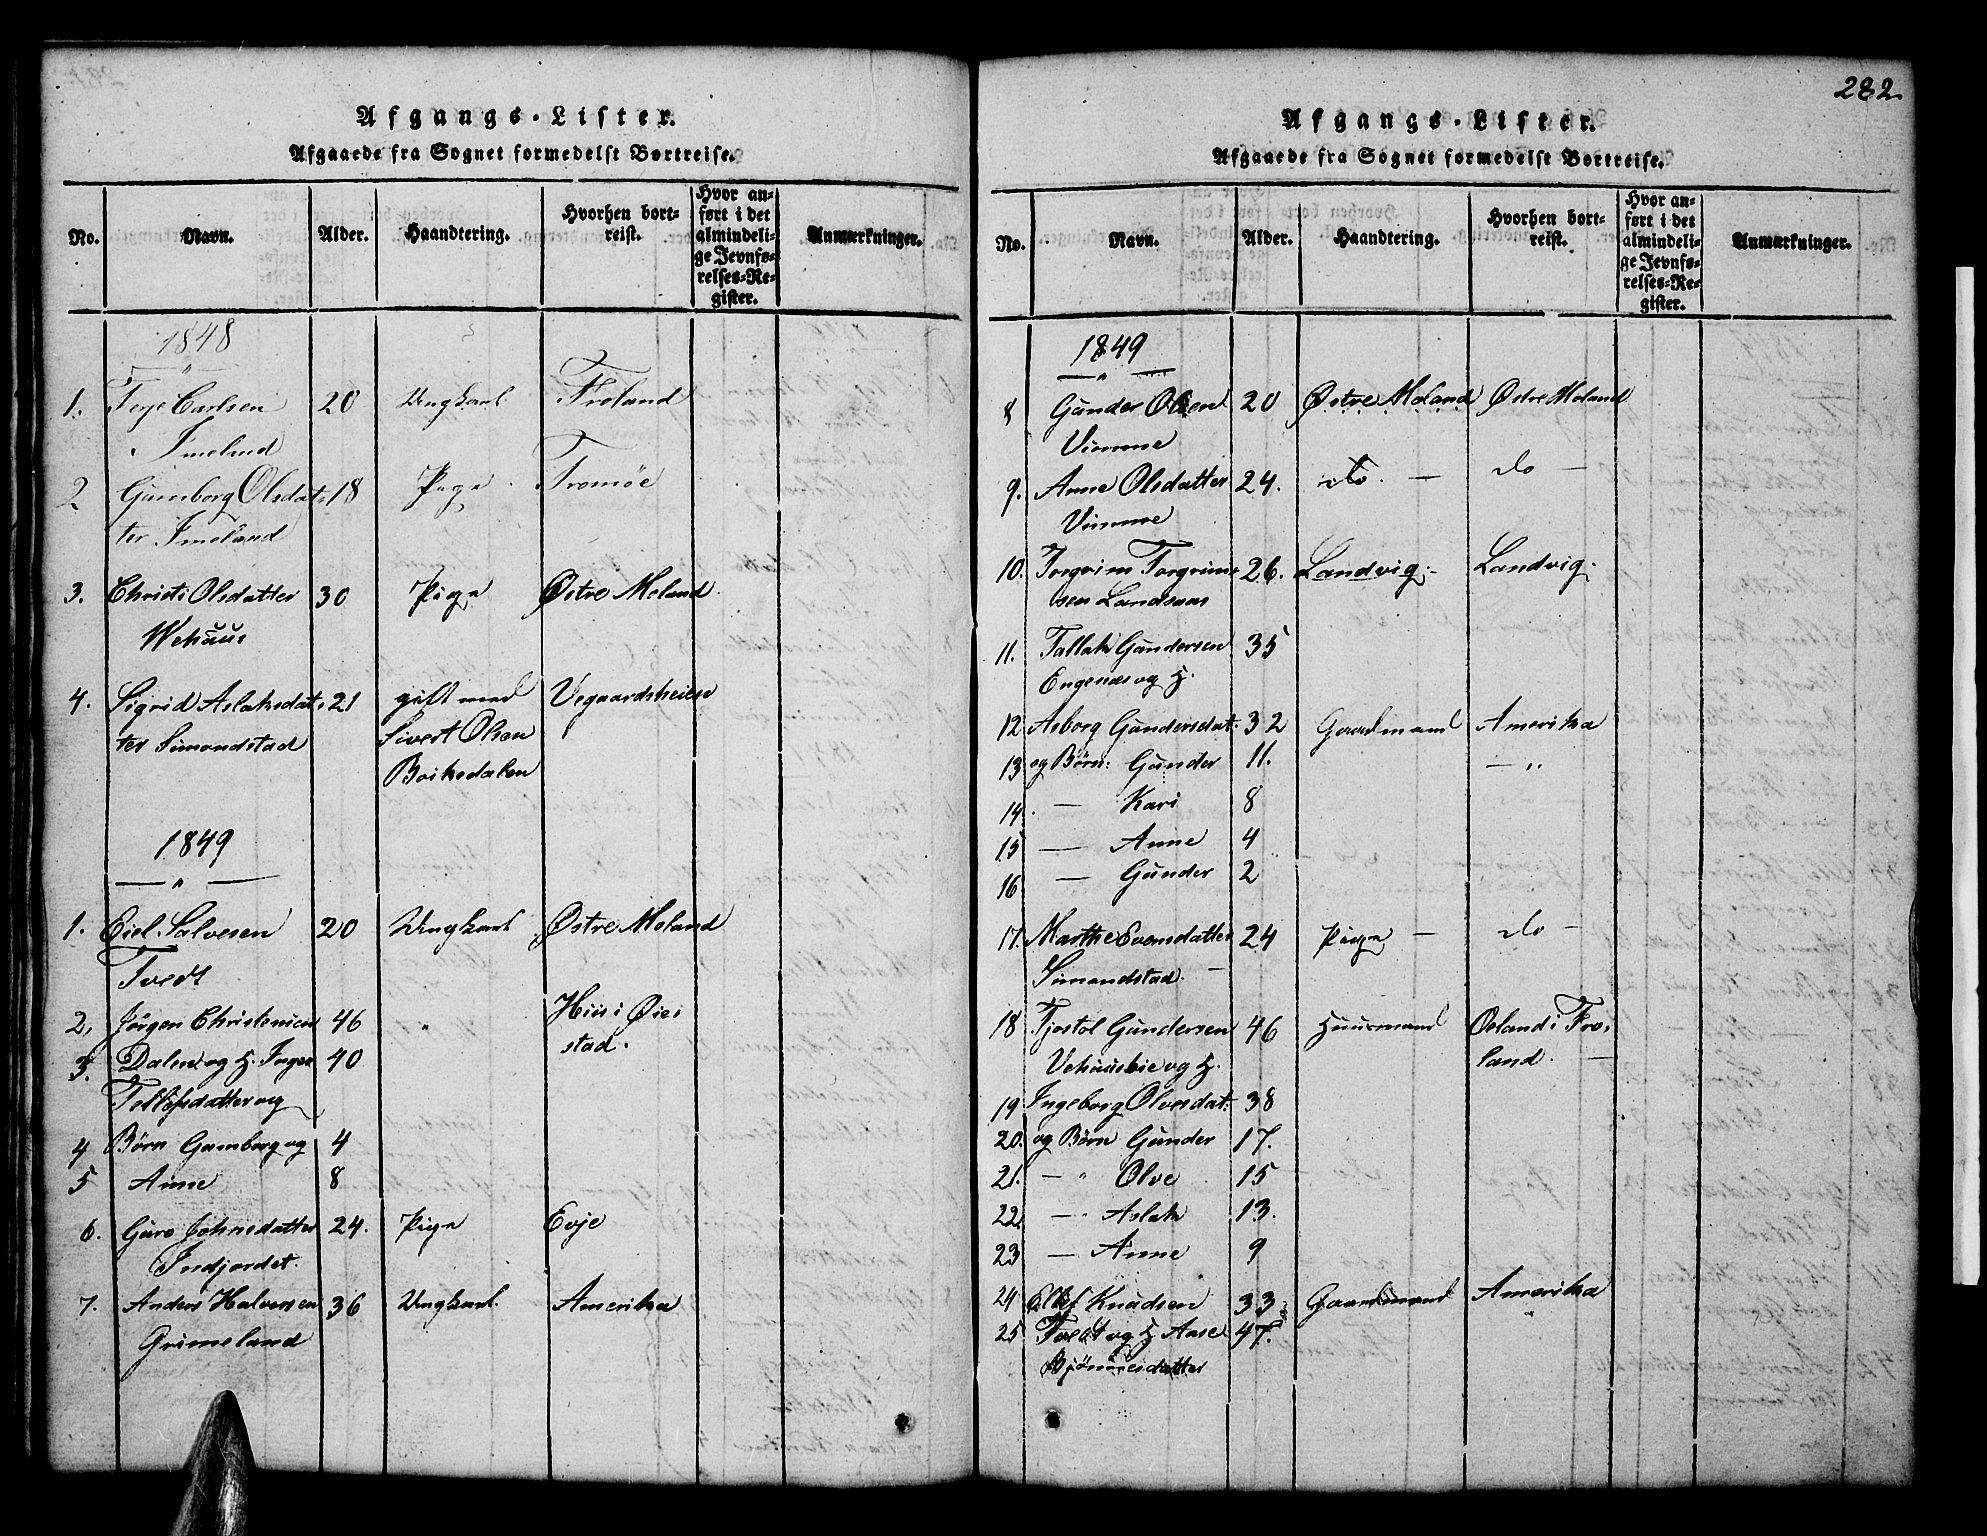 Afgangs-Lister.
Afgaaede fra Sognet formedelst Bortreise.
No. Navn. Alder. Haandtering. Hvorhen bortreist. Hvor anført i det almindelige Jevnførelses-Register. Anmærkninger.
1848
1. Terje Carlsen 20 Ungkarl Froland
Imeland
2 Gumborg Olsdat- 18 Pige Tromöe
ter Imeland
3. Christi Olsdatter 30 Pige Østre Moland
Wehuus
4. Sigrid Aslaksdat- 21 gift med Vegaardsheien
ter Simonstad Sivert Olsen
Boikedalen
1849
1. Eiel Salvesen 20 Ungkarl Østre Moland
Tvedt
2, Jörgen Christensen 46 " Hiis i Øie-
3. Dalen og H. Inger 40 stad.
Tellefsdatter og
4 Börn Gumborg og 4
5 Anne 8
6. Guro Johnsdatter 24. Pige Evje
Indjordet.
7. Anders Halvorsen 36 Ungkarl. Amerika
Grimeland
282
Afgangs-Lister.
Afgaaede fra Sognet formedelst Bortreise.
No. Navn. Alder. Haandtering. Hvorhen bortreist. Hvor anført i det almindelige Jevnførelses-Register. Anmærkninger.
1849
8 Gunder Olsen 20 Østre Moland Østre Moland
Vimme
9. Anne Olsdatter 24. do. — do —
Vimme
10. Torgrim Torgrim- 26. Landvig. Landvig.
sen Landsaas
11. Tallak Gundersen 35
Engenæs og H.
12 Asborg Gundersdat: 32 Gaardmand Amerika
13 og Börn: Gunder 11. — "
14. — Kari 8
15 — Anne 4
16 — Gunder 2
17. Marthe Evensdatter 24 Pige — do —
Simonstad. —
18 Tjostol Gundersen 46 Huusmand Osland i Fro-
Vehuusbie og H. land. —
19 Ingeborg Olvesdat: 38
20. og Börn Gunder 17.
21. — " Olve 15
22. — " Aslak 13.
23 — Anne 9
24 Ellef Knudsen 33 Gaardmand Amerika
25 Tvedt og H Aase 47.
Bjönnesdatter